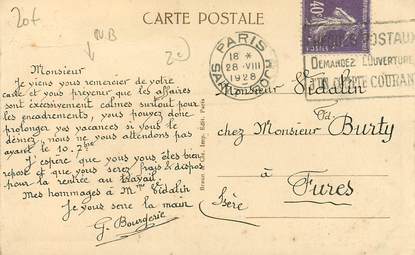 20f
CARTE POSTALE
NB
40c
PARIS
18 *
28 - VIII
1928
CHÈQUES POSTAUX
DEMANDEZ L'OUVERTURE
D'UN COMPTE COURANT
Monsieur
Je viens vous remercier de votre
carte et vous prévenir que les affaires
sont excessivement calmes surtout pour
les encadrements, vous pouvez donc
prolonger vos vacances si vous le
désirez, nous ne vous attendons pas
avant le 10. 7bre
J'espère que vous vous êtes bien
reposé et que vous serez frais & dispos
pour la rentrée au travail.
Mes hommages à Mme Vidalin
Je vous serre la main
G. Bourgerie
Imp. Édit. Paris
Monsieur Vidalin
chez Monsieur Burty
à
Fures
Isère